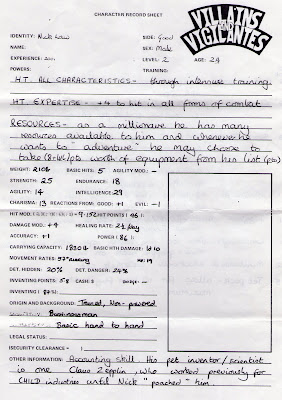 CHARACTER RECORD SHEET
VILLAINS AND VIGILANTES
IDENTITY: Nick SIDE: Good
NAME: SEX: Male
EXPERIENCE: LEVEL: 2 AGE: 29
POWERS: TRAINING:
H.T. ALL CHARACTERISTICS - through intensive training.
H.T. EXPERTISE - +4 to hit in all forms of combat
RESOURCES - as a millionaire he has many
resources available to him and whenever he
wants to "adventure" he may choose to
take worth of equipment from his list
WEIGHT: 210lb BASIC HITS: 5 AGILITY MOD: -1
STRENGTH: 25 ENDURANCE: 18
AGILITY: 14 INTELLIGENCE: 29
CHARISMA: 13 REACTIONS FROM: GOOD: +1 EVIL: -1
HIT MOD. HIT POINTS
DAMAGE MOD: +4 HEALING RATE: day
ACCURACY: +1 POWER
CARRYING CAPACITY: 1830lb BASIC HTH DAMAGE: 1d10
MOVEMENT RATES: 57"
DET. HIDDEN: 20% DET. DANGER: 24%
INVENTING POINTS: 5.8 CASH $
INVENTING
ORIGIN AND BACKGROUND: Trained, Non-powered
Businessman
Basic hand to hand
LEGAL STATUS:
SECURITY CLEARANCE:
OTHER INFORMATION: Accounting skill. His pet inventor/scientist
is one Claus Zepplin, who worked previously for
CHILD industries until Nick "poached" him.